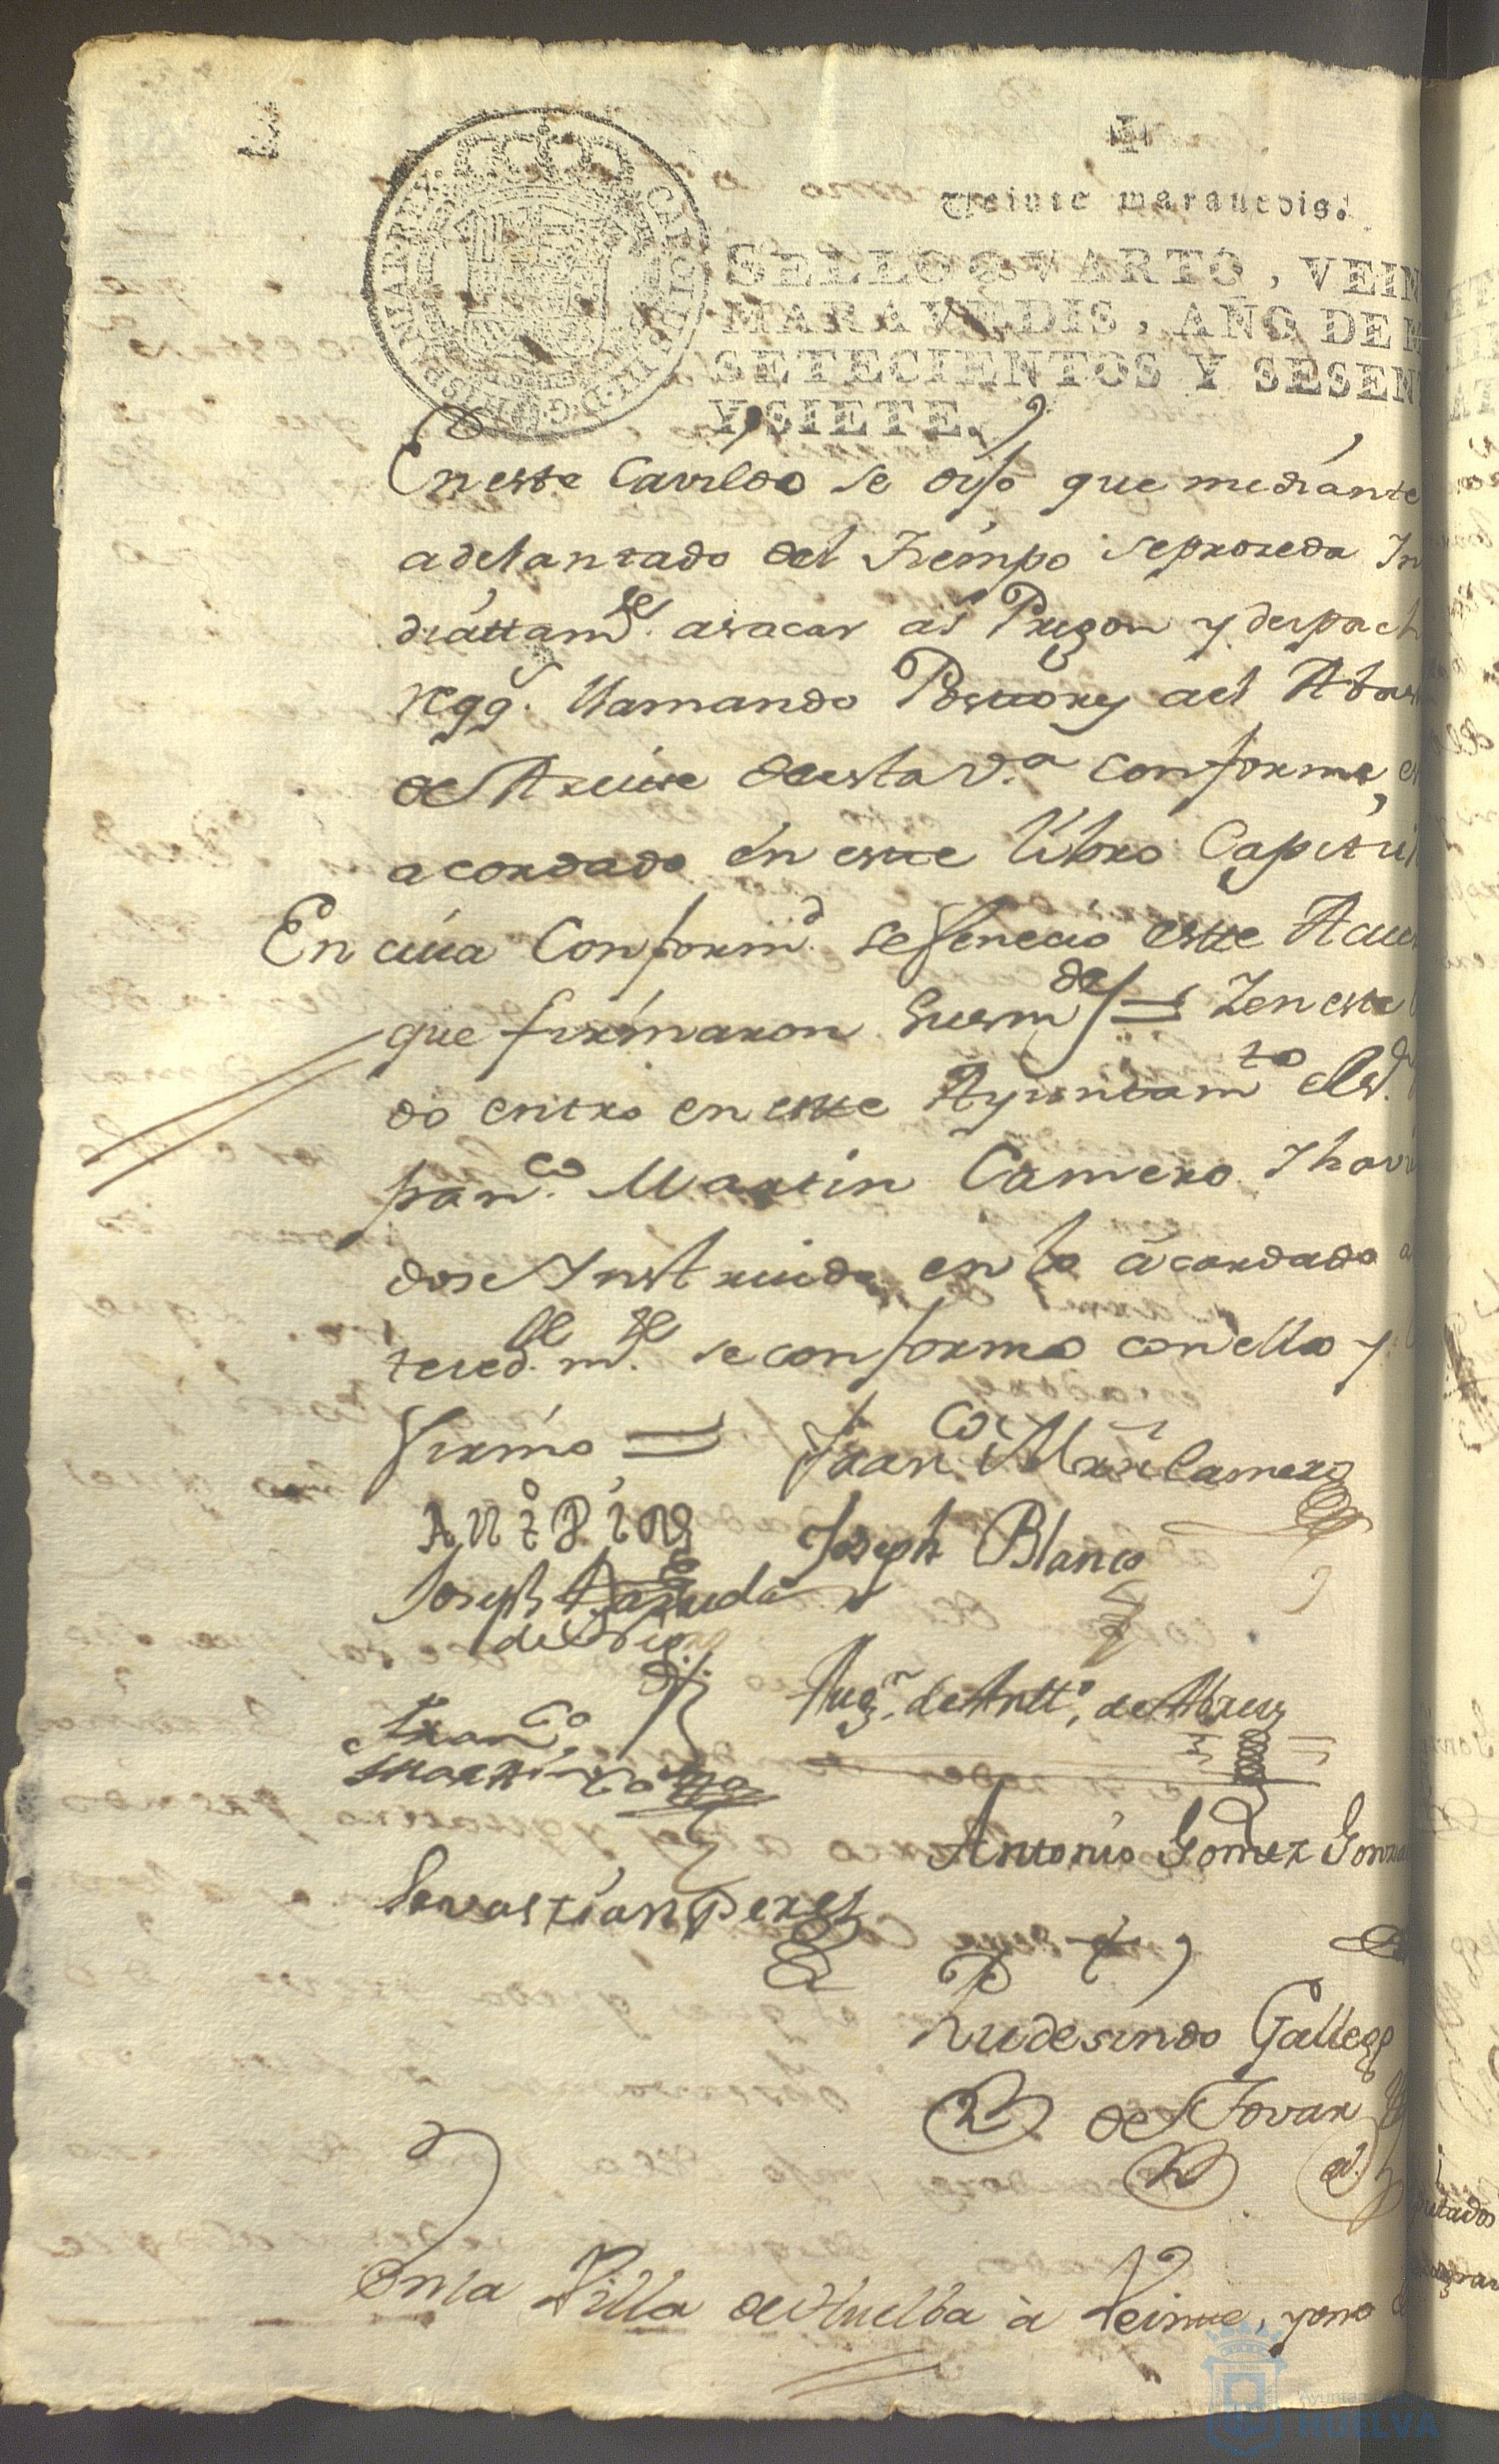 Veinte maravedis.
SELLO QVARTO, VEIN
MARAVEDIS, AÑO DE M
SETECIENTOS Y SESEN
Y SIETE.
CAROLUS III D.G. HISPANIAR. REX
En este Cavildo se dijo que mediante
adelantado del Tiempo se proceda In
diattamte. asacar al Pregon y despach
regg. llamando Postores al Abas
de Azeite de esta Va. conforme, es
acordado en este libro Capitul
En cuia Conformd. se fenecio este Acue
que firmaron Sus mds = Y en este
do entro en este Ayuntamto el Sr.
franco. Martin Camero Y havi
dose Instruido en lo acordado a
tecedte. mte. se conformo con ello y
firmo = Franco Mrn Camero
Joseph Blanco
Joseph
de
Augn. de Antto. de Abreu
Franco.
Martin
Antonio Gomez Gonza
Sevastian Perez
Rudesindo Gallego
de Tovar
En la Villa de Huelba à Veinte, y ono
putados
Ayuntam
HUELVA